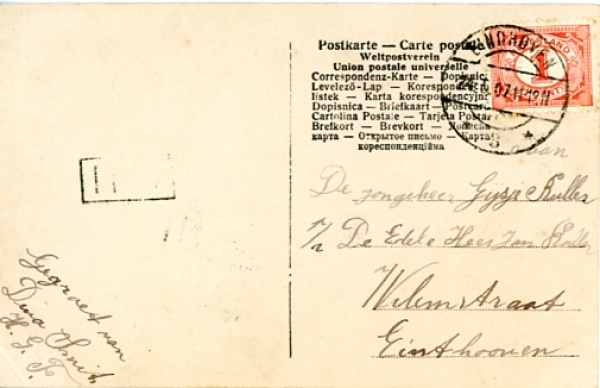 Postkarte — Carte postale
Weltpostverein
Union postale universelle
Correspondenz-Karte — Dopisnic
Levelező-Lap — Korespondenc
listek — Karta korespondencyjn
Dopisnica — Briefkaart — Postcard
Cartolina Postale — Tarjeta Postal
Brefkort — Brevkort —
карта — Открытое письмо — Карта
кореспонденційна
EINDHOVEN
1
aan
De jongeheer Gijsje Kulles
De Edele Heer Jan
Wilemstraat
Einthooven
Gegroet van
Dina Smit.
H. G. F.